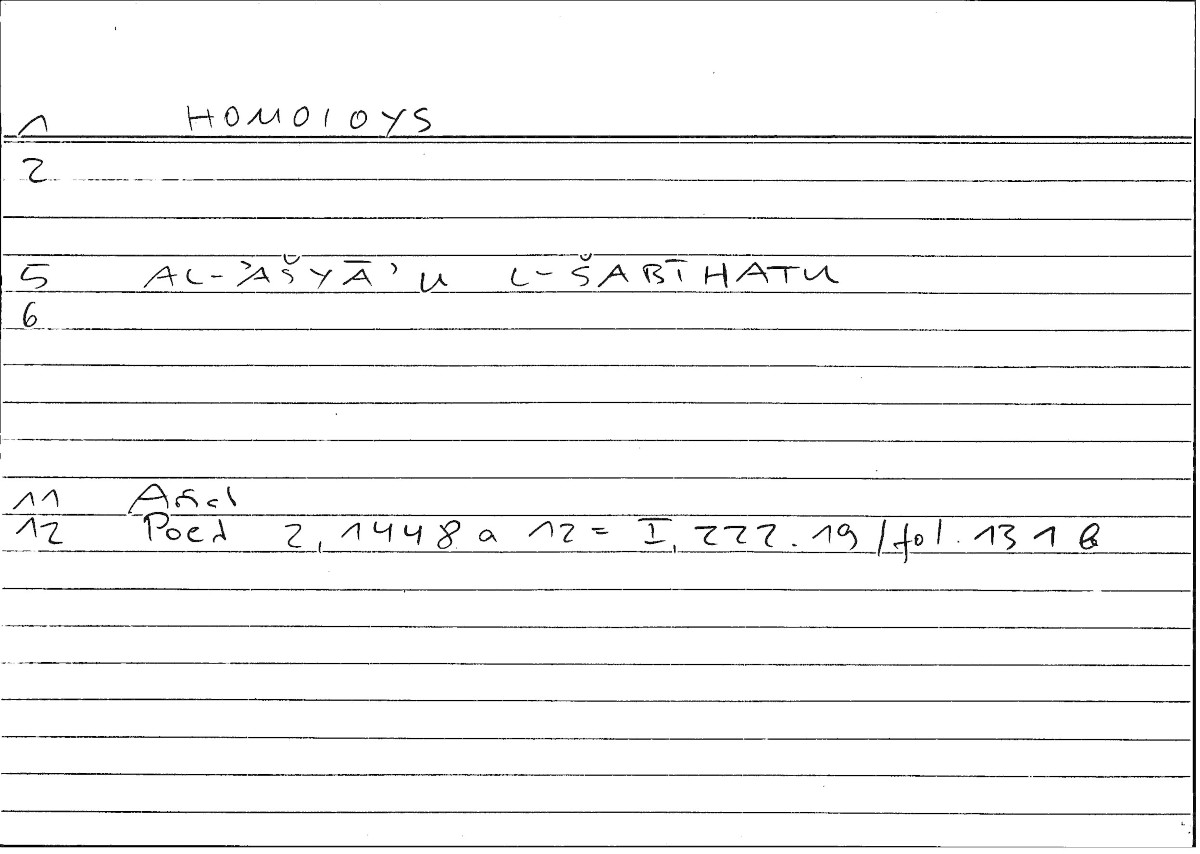 1 HOMOIOYS
2
5 AL-ʾAŠYĀʾU L-ŠABĪHATU
6
11
12 Poet 2, 1448 a 12 = I, 222.19 / fol. 131 b